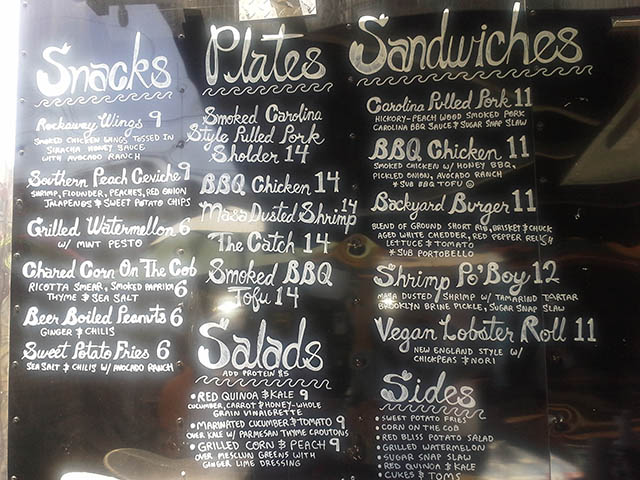 Snacks
Rockaway Wings 9
SMOKED CHICKEN WINGS TOSSED IN
SIRACHA HONEY SAUCE
WITH AVOCADO RANCH
Southern Peach Ceviche 9
SHRIMP, FLOUNDER, PEACHES, RED ONION
JALAPENOS & SWEET POTATO CHIPS
Grilled Watermellon 6
W/ MINT PESTO
Chared Corn On The Cob 6
RICOTTA SMEAR, SMOKED PAPRIKA
THYME & SEA SALT
Beer Boiled Peanuts 6
GINGER & CHILIS
Sweet Potato Fries 6
SEA SALT & CHILIS W/ AVOCADO RANCH
Plates
Smoked Carolina
Style Pulled Pork
Sholder 14
BBQ Chicken 14
Masa Dusted Shrimp 14
The Catch 14
Smoked BBQ
Tofu 14
Salads
ADD PROTEIN $5
• RED QUINOA & KALE 9
CUCUMBER, CARROT & HONEY-WHOLE
GRAIN VINAIGRETTE
• MARINATED CUCUMBER & TOMATO 9
OVER KALE W/ PARMESAN THYME CROUTONS
• GRILLED CORN & PEACH 9
OVER MESCLUN GREENS WITH
GINGER LIME DRESSING
Sandwiches
Carolina Pulled Pork 11
HICKORY-PEACH WOOD SMOKED PORK
CAROLINA BBQ SAUCE & SUGAR SNAP SLAW
BBQ Chicken 11
SMOKED CHICKEN W/ HONEY BBQ,
PICKLED ONION, AVOCADO RANCH
* SUB BBQ TOFU ☺
Backyard Burger 11
BLEND OF GROUND SHORT RIB, BRISKET & CHUCK
AGED WHITE CHEDDER, RED PEPPER RELISH
LETTUCE & TOMATO
* SUB PORTOBELLO
Shrimp Po'Boy 12
MASA DUSTED SHRIMP W/ TAMARIND TARTAR
BROOKLYN BRINE PICKLE, SUGAR SNAP SLAW
Vegan Lobster Roll 11
NEW ENGLAND STYLE W/
CHICKPEAS & NORI
Sides
• SWEET POTATO FRIES
• CORN ON THE COB
• RED BLISS POTATO SALAD
• GRILLED WATERMELON
• SUGAR SNAP SLAW
• RED QUINOA & KALE
• CUKES & TOMS